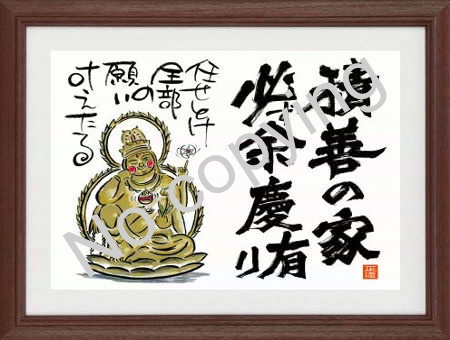 積善の家
必ず余慶有り
任せとけ
全部の
願い
叶えたる
No copying